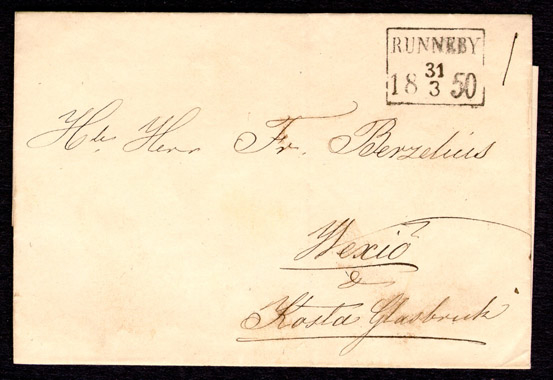 RUNNEBY
31
18 3 50
Hr Herr Fr. Berzelius
Wexiö
&
Kosta Glasbruk